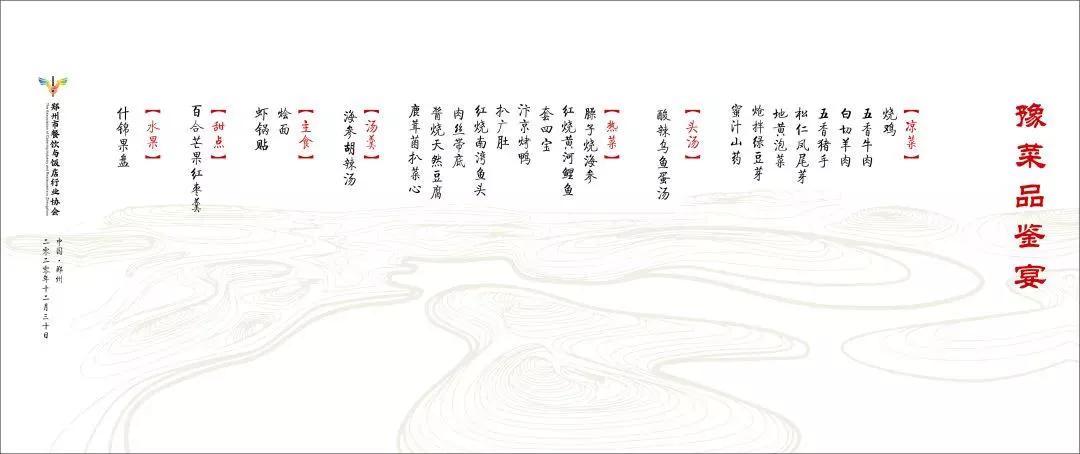 豫菜品鉴宴
【凉菜】
烧鸡
五香牛肉
白切羊肉
五香猪手
松仁凤尾芽
地黄泡菜
炝拌绿豆芽
蜜汁山药
【头汤】
酸辣乌鱼蛋汤
【热菜】
脿子烧海参
红烧黄河鲤鱼
套四宝
汴京烤鸭
扒广肚
红烧南湾鱼头
肉丝带底
酱烧天然豆腐
鹿茸菌扒菜心
【汤羹】
海参胡辣汤
【主食】
烩面
虾锅贴
【甜点】
百合芒果红枣羹
【水果】
什锦果盘
郑州市餐饮与饭店行业协会
中国·郑州
二零二零年十二月三十日